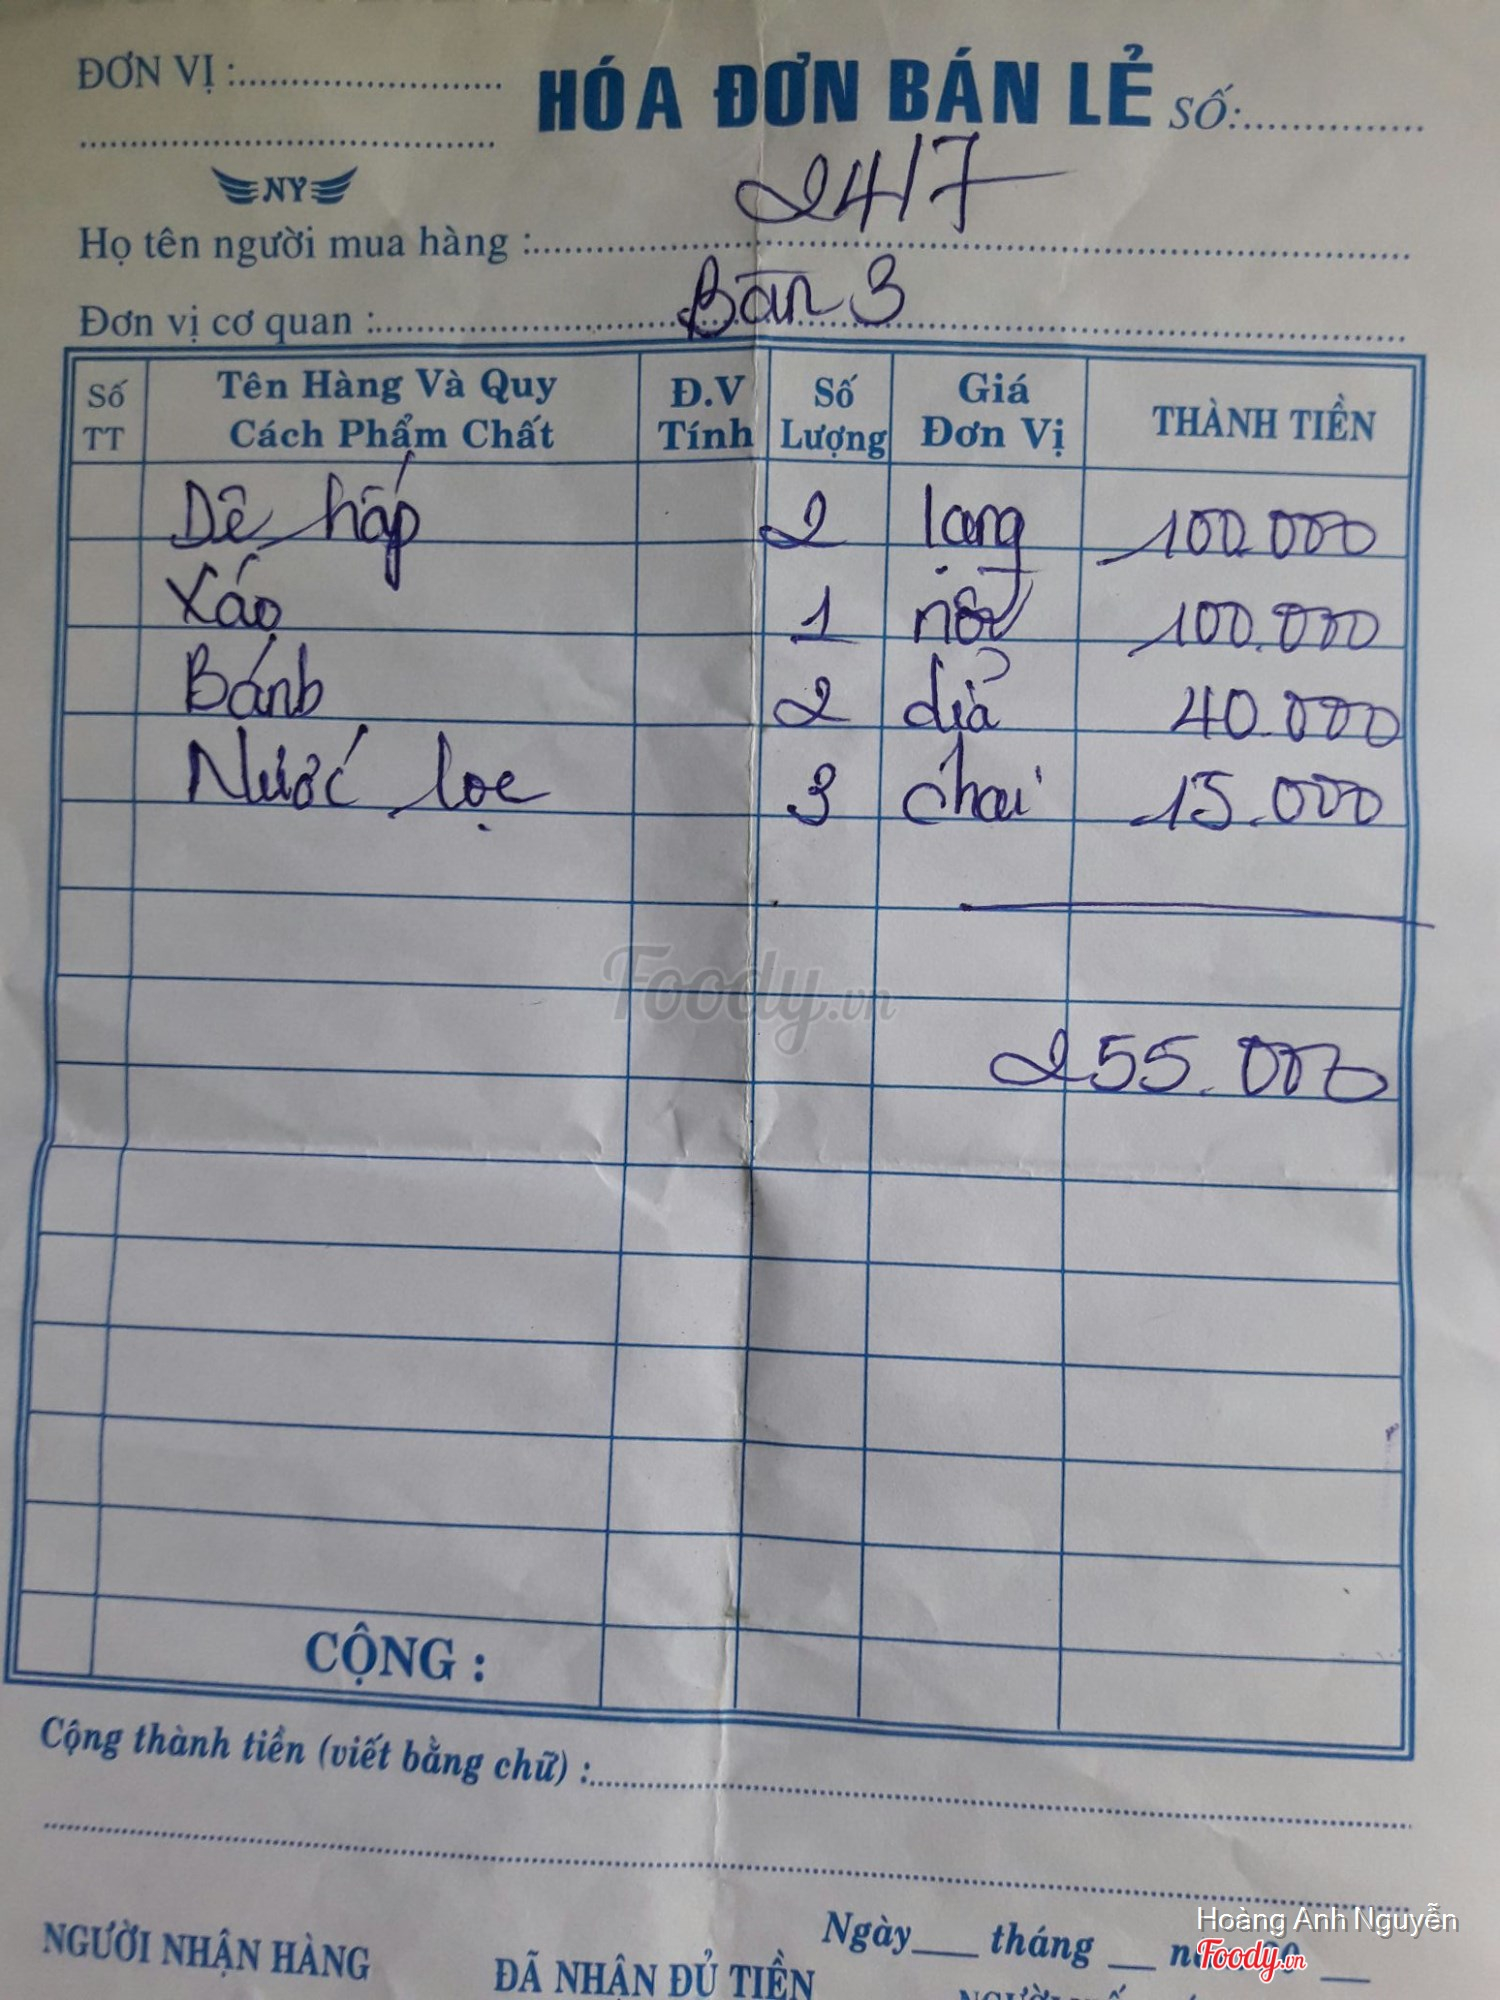 ĐƠN VỊ :
HÓA ĐƠN BÁN LẺ SỐ:
NY
24/7
Họ tên người mua hàng :
Đơn vị cơ quan : Bàn 3
Số TT Tên Hàng Và Quy Cách Phẩm Chất Đ.V Tính Số Lượng Giá Đơn Vị THÀNH TIỀN
Dê hấp 2 lạng 100.000
Xáo 1 nồi 100.000
Bánh 2 dĩa 40.000
Nước lọc 3 chai 15.000
Foody.vn
255.000
CỘNG :
Cộng thành tiền (viết bằng chữ) :
Ngày tháng
NGƯỜI NHẬN HÀNG
ĐÃ NHẬN ĐỦ TIỀN
Hoàng Anh Nguyễn
Foody.vn